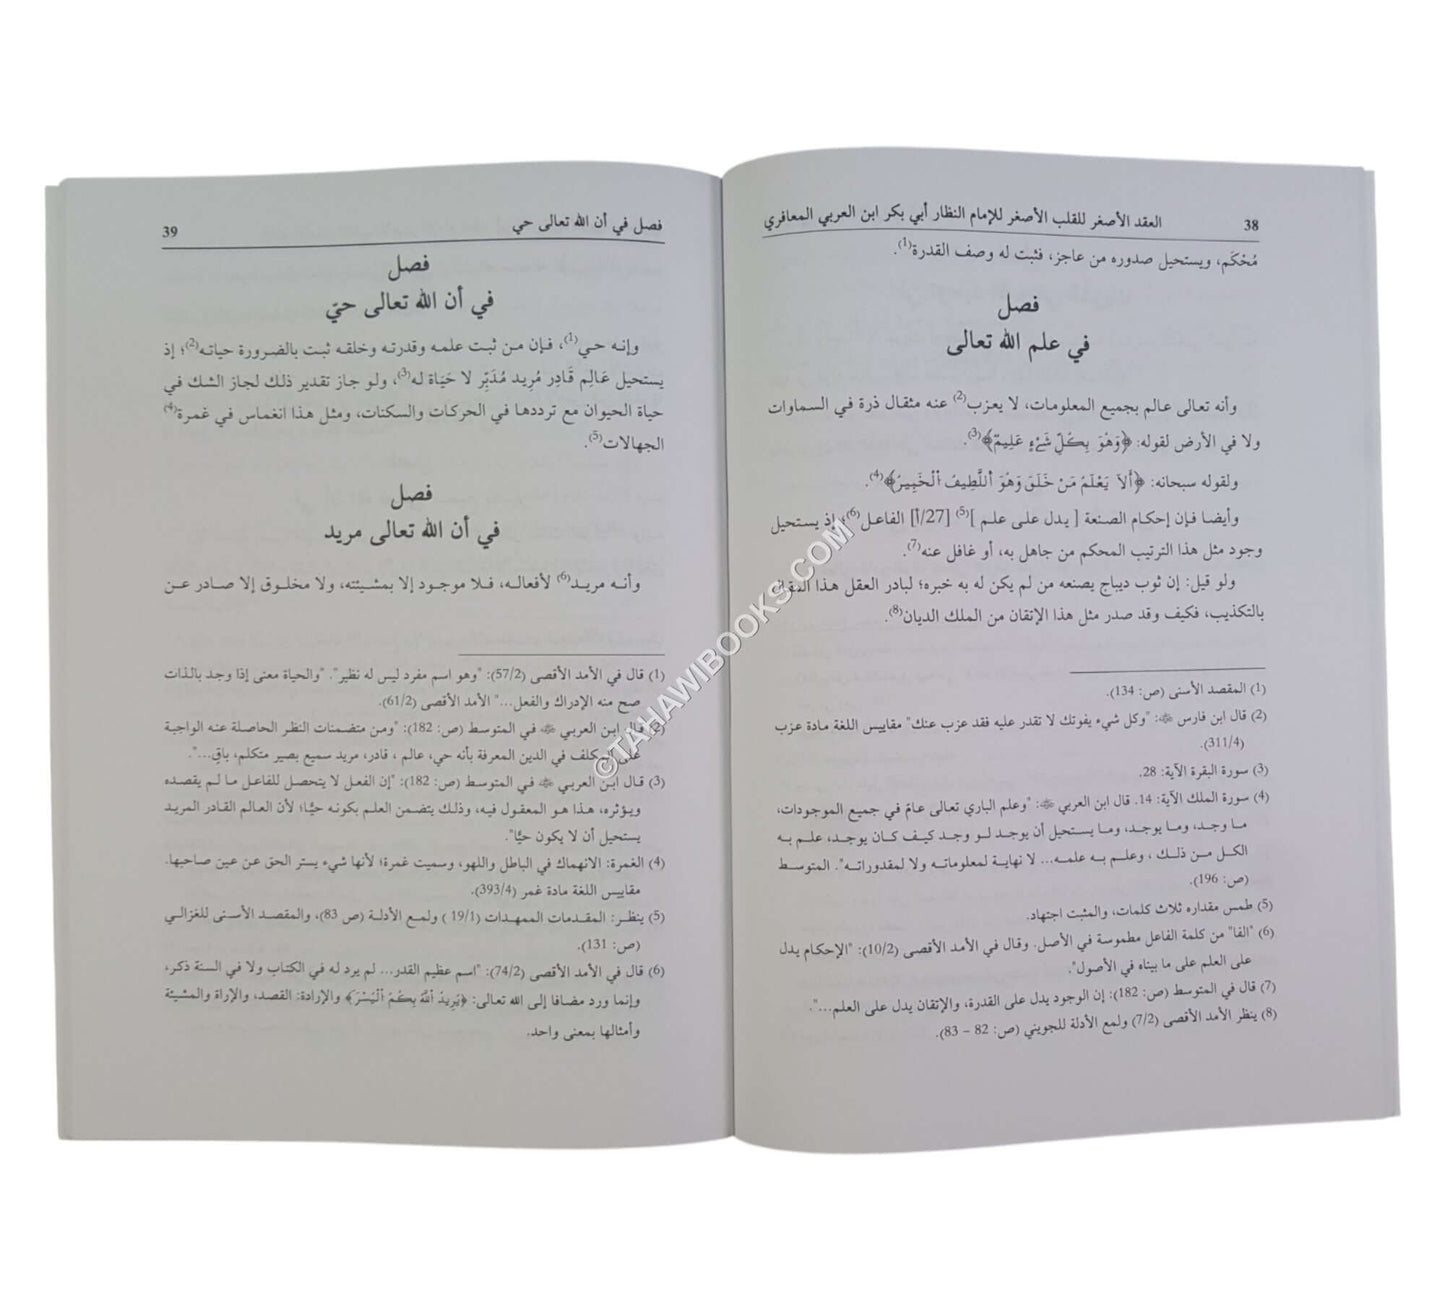 38 العقد الأصغر للقلب الأصغر للإمام النظار أبي بكر ابن العربي المعافري
مُحْكَم، ويستحيل صدوره من عاجز، فثبت له وصف القدرة(1).
فصل
في علم الله تعالى
وأنه تعالى عالم بجميع المعلومات، لا يعزب(2) عنه مثقال ذرة في السماوات
ولا في الأرض لقوله: ﴿وَهُوَ بِكُلِّ شَيْءٍ عَلِيمٌ﴾(3).
ولقوله سبحانه: ﴿أَلَا يَعْلَمُ مَنْ خَلَقَ وَهُوَ اَللَّطِيفُ اُلْخَبِيرُ﴾(4).
وأيضا فإن إحكام الصنعة [ يدل على علم ](5) [27/أ] الفاعل(6)؛ إذ يستحيل
وجود مثل هذا الترتيب المحكم من جاهل به، أو غافل عنه(7).
ولو قيل: إن ثوب ديباج يصنعه من لم يكن له به خبره؛ لبادر العقل هذا المقال
بالتكذيب، فكيف وقد صدر مثل هذا الإتقان من الملك الديان(8).
(1) المقصد الأسنى (ص: 134).
(2) قال ابن فارس ﷺ: "وكل شيء يفوتك لا تقدر عليه فقد عزب عنك" مقاييس اللغة مادة عزب
(311/4).
(3) سورة البقرة الآية: 28.
(4) سورة الملك الآية: 14. قال ابن العربي: "وعلم الباري تعالى عامّ في جميع الموجودات،
ما وجد، وما يوجد، وما يستحيل أن يوجد لو وجد كيف كان يوجد، علم به
الكل من ذلك ، وعلم به علمه... لا نهاية لمعلوماته ولا لمقدوراته". المتوسط
(ص: 196).
(5) طمس مقداره ثلاث كلمات، والمثبت اجتهاد.
(6) "الفا" من كلمة الفاعل مطموسة في الأصل. وقال في الأمد الأقصى (10/2): "الإحكام يدل
على العلم على ما بيناه في الأصول".
(7) قال في المتوسط (ص: 182): إن الوجود يدل على القدرة، والإتقان يدل على العلم...".
(8) ينظر الأمد الأقصى (7/2) ولمع الأدلة للجويني (ص: 82 – 83).
فصل في أن الله تعالى حي 39
فصل
في أن الله تعالى حيّ
وإنه حي(1)، فإن من ثبت علمه وقدرته وخلقه ثبت بالضرورة حياته(2)؛ إذ
يستحيل عَالِم قَادِر مُرِيد مُدَبِّر لا حَيَاة له(3)، ولو جاز تقدير ذلك لجاز الشك في
حياة الحيوان مع ترددها في الحركات والسكنات، ومثل هذا انغماس في غمرة(4)
الجهالات(5).
فصل
في أن الله تعالى مريد
وأنه مريد(6) لأفعاله، فلا موجود إلا بمشيئته، ولا مخلوق إلا صادر عن
(1) قال في الأمد الأقصى (57/2): "وهو اسم مفرد ليس له نظير". "والحياة معنى إذا وجد بالذات
صح منه الإدراك والفعل..." الأمد الأقصى (61/2).
(2) قال ابن العربي في المتوسط (ص: 182): "ومن متضمنات النظر الحاصلة عنه الواجبة
على المكلف في الدين المعرفة بأنه حي، عالم ، قادر، مريد سميع بصير متكلم، باقٍ...".
(3) قال ابن العربي في المتوسط (ص: 182): "إن الفعل لا يتحصل للفاعل ما لم يقصده
ويؤثره، هذا هو المعقول فيه، وذلك يتضمن العلم بكونه حيًّا؛ لأن العالم القادر المريد
يستحيل أن لا يكون حيًّا".
(4) الغمرة: الانهماك في الباطل واللهو، وسميت غمرة؛ لأنها شيء يستر الحق عن عين صاحبها.
مقاييس اللغة مادة غمر (393/4).
(5) ينظر: المقدمات الممهدات (19/1 ) ولمع الأدلة (ص 83)، والمقصد الأسنى للغزالي
(ص: 131).
(6) قال في الأمد الأقصى (74/2): "اسم عظيم القدر... لم يرد له في الكتاب ولا في السنة ذكر،
وإنما ورد مضافا إلى الله تعالى: ﴿يُرِيدُ اُللَّهُ بِكُمُ اُلْيُسْرَ﴾ والإرادة: القصد، والإراة والمشيئة
وأمثالها بمعنى واحد.
©TAHAWIBOOKS.COM